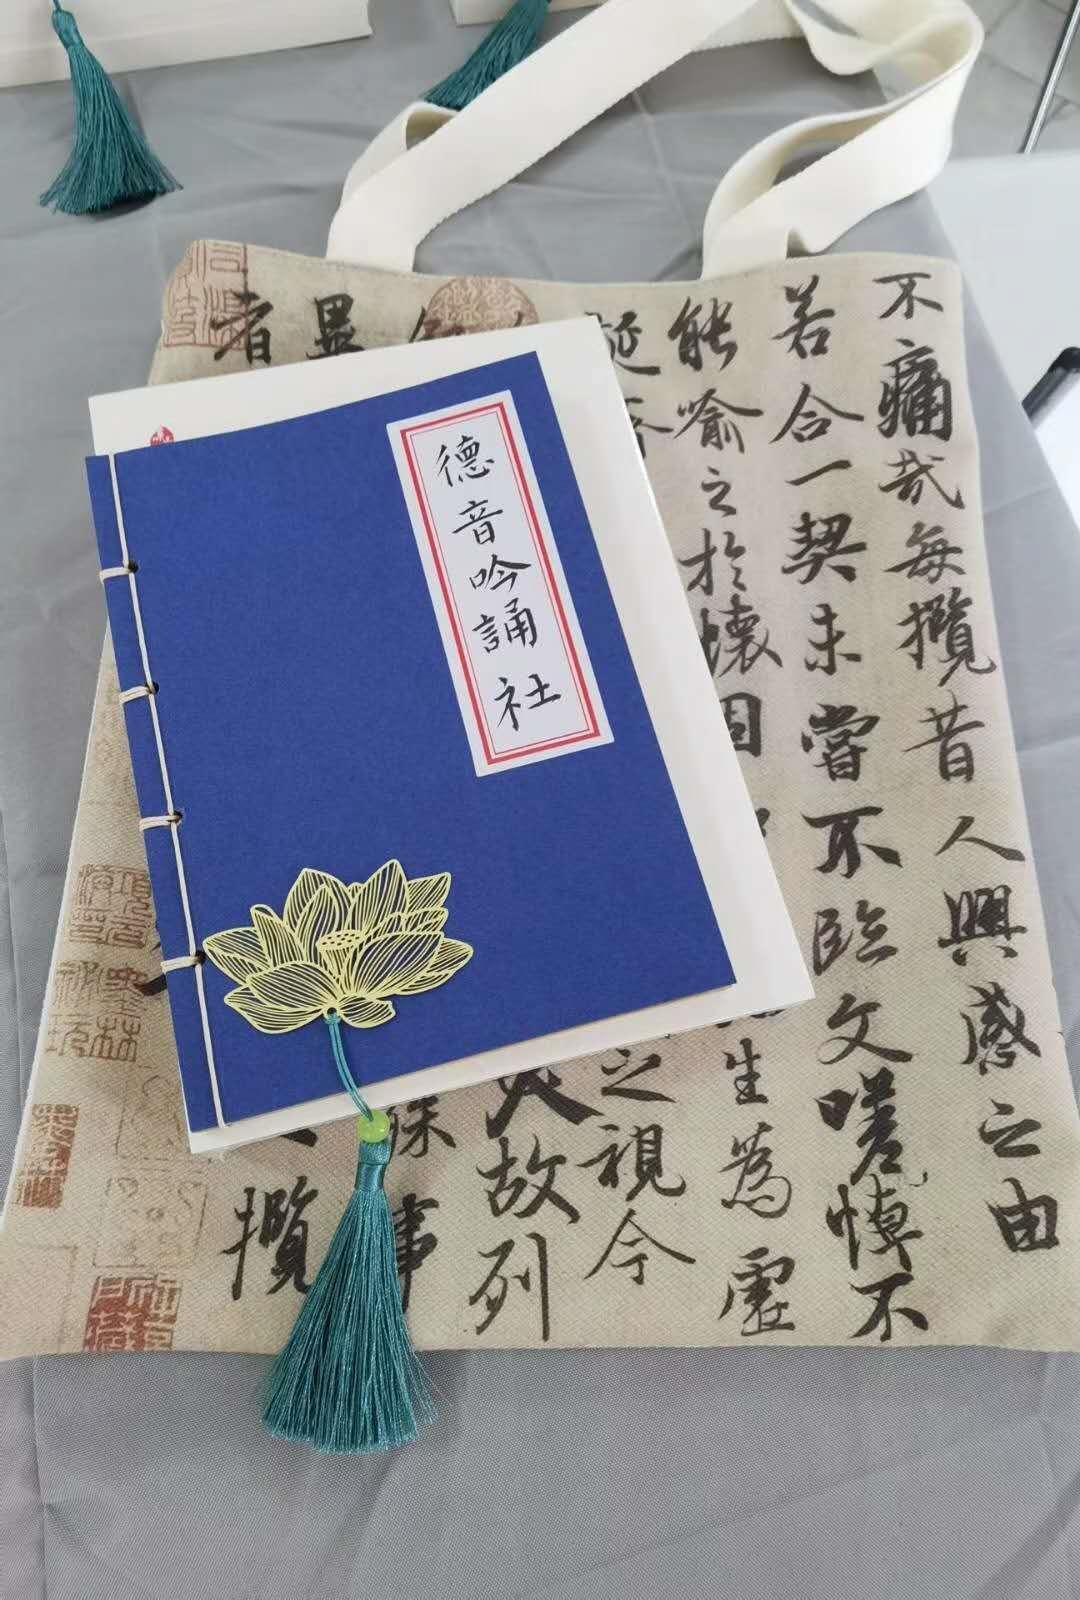 德音吟誦社
不痛哉每攬昔人興感之由
若合一契未嘗不臨文嗟悼不
能喻之於懷固
生為虛
誕
之視今
夫故列
殊事
異
攬
者